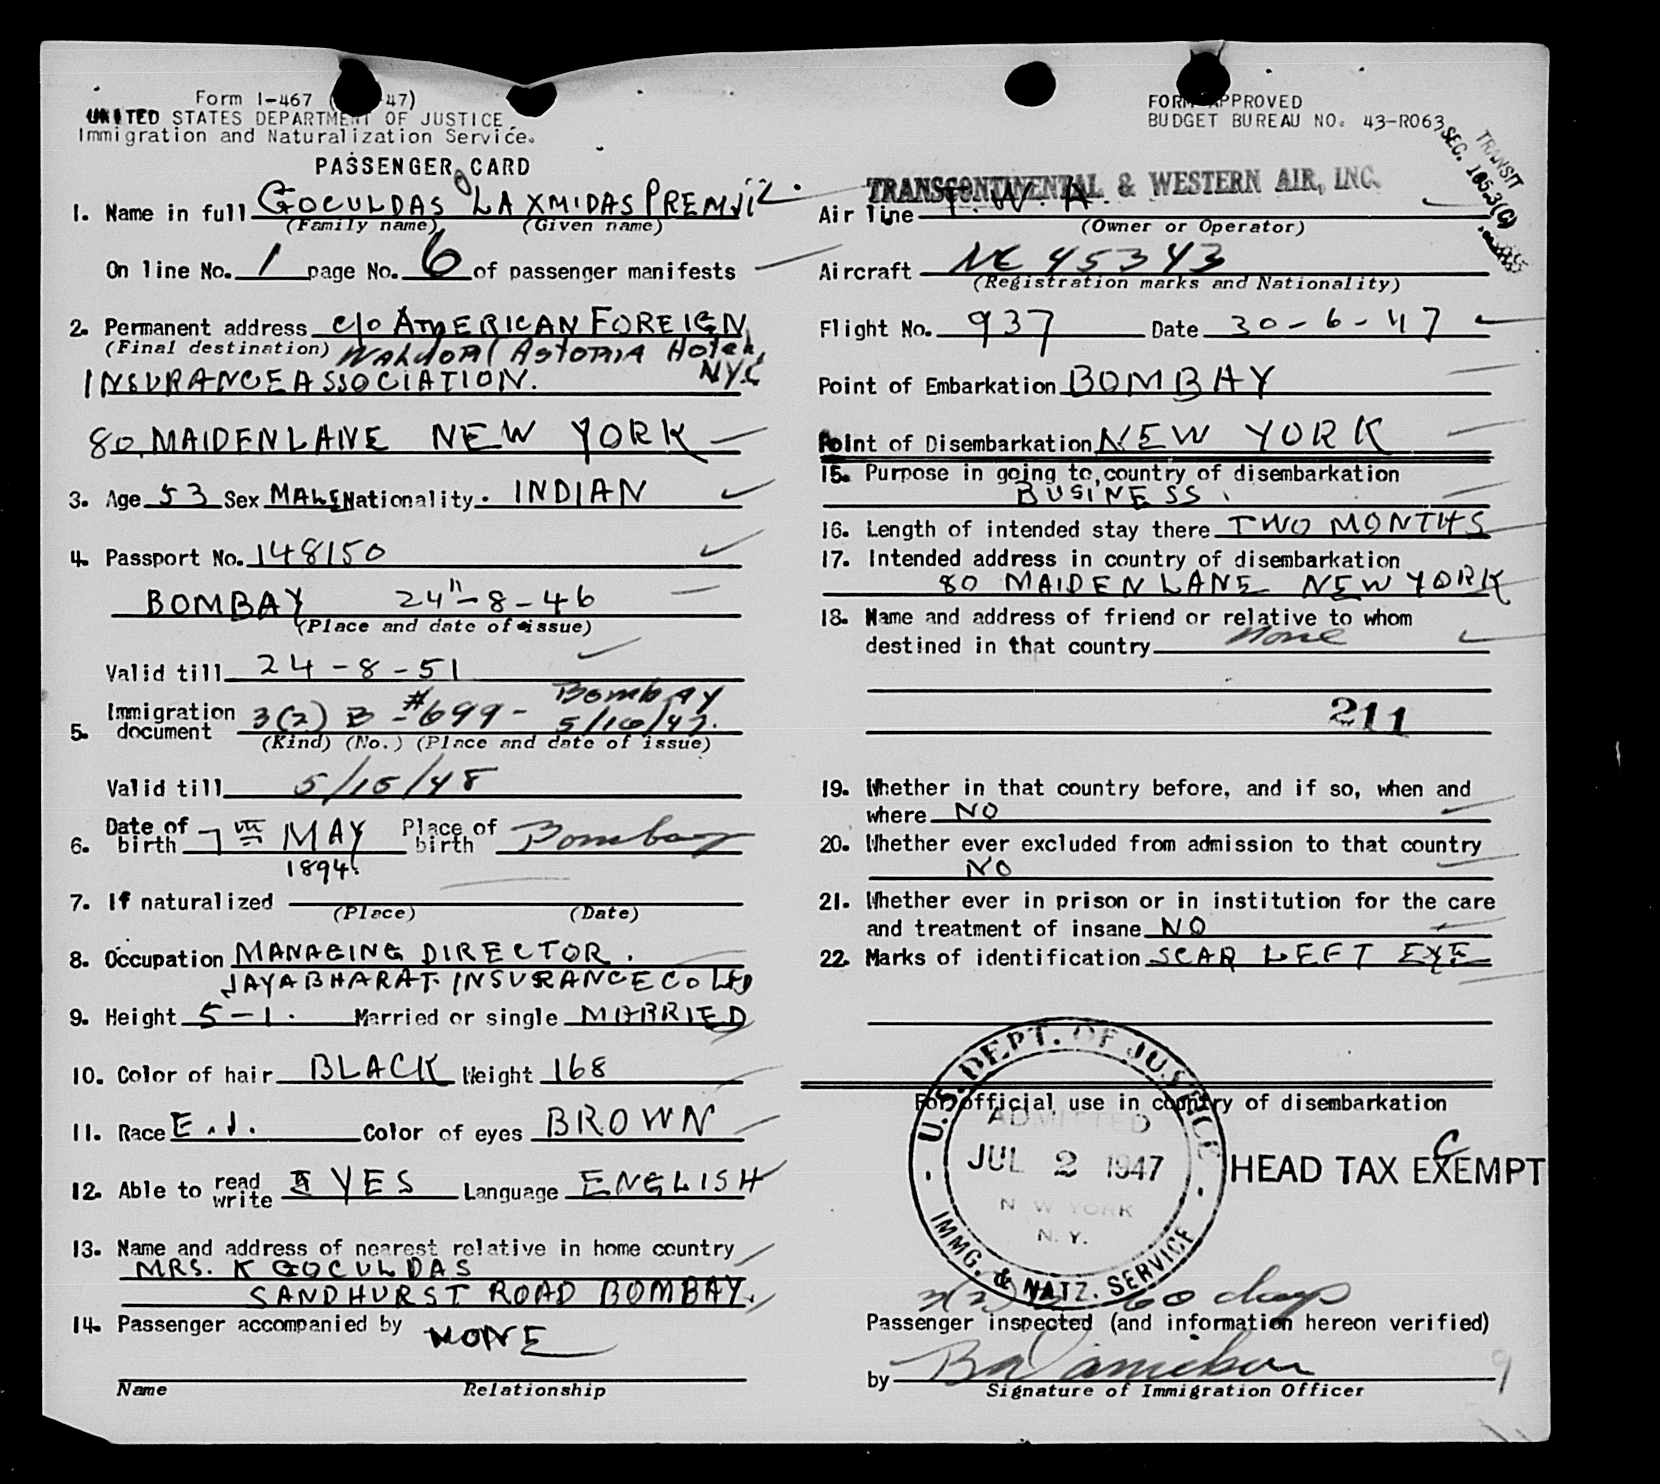 Form I-467 ( 47)
UNITED STATES DEPARTMENT OF JUSTICE
Immigration and Naturalization Service.
PASSENGER CARD
1. Name in full GOCULDAS LAXMIDAS PREMJI
(Family name) (Given name)
On line No. 1 page No. 6 of passenger manifests
2. Permanent address c/o AMERICAN FOREIGN
(Final destination) Waldorf Astoria Hotel,
INSURANCE ASSOCIATION. NYC
80 MAIDEN LANE NEW YORK
3. Age 53 Sex MALE Nationality. INDIAN
4. Passport No. 148150
BOMBAY 24"-8-46
(Place and date of issue)
Valid till 24-8-51
Immigration 3(2) B - #699 - Bombay
5. document 5/16/47.
(Kind) (No.) (Place and date of issue)
Valid till 5/15/48
6. Date of birth 7th MAY Place of birth Bombay
1894.
7. If naturalized
(Place) (Date)
8. Occupation MANAGING DIRECTOR.
JAYABHARAT. INSURANCE CO LTD
9. Height 5-1. Married or single MARRIED
10. Color of hair BLACK Weight 168
11. Race E.I. Color of eyes BROWN
12. Able to read write YES Language ENGLISH
13. Name and address of nearest relative in home country
MRS. K GOCULDAS
SANDHURST ROAD BOMBAY.
14. Passenger accompanied by NONE
Name Relationship
FORM APPROVED
BUDGET BUREAU NO. 43-R063
TRANSIT
SEC. 1053(C)
TRANSCONTINENTAL & WESTERN AIR, INC.
Air line T.W.A.
(Owner or Operator)
Aircraft NC 45343
(Registration marks and Nationality)
Flight No. 937 Date 30-6-47
Point of Embarkation BOMBAY
Point of Disembarkation NEW YORK
15. Purpose in going to country of disembarkation
BUSINESS.
16. Length of intended stay there TWO MONTHS
17. Intended address in country of disembarkation
80 MAIDEN LANE NEW YORK
18. Name and address of friend or relative to whom
destined in that country none
211
19. Whether in that country before, and if so, when and
where NO
20. Whether ever excluded from admission to that country
NO
21. Whether ever in prison or in institution for the care
and treatment of insane NO
22. Marks of identification SCAR LEFT EYE
For official use in country of disembarkation
U.S. DEPT. OF JUSTICE
ADMITTED
JUL 2 1947
NEW YORK
N.Y.
IMMG. & NATZ. SERVICE
HEAD TAX EXEMPT
3(2) 60 days
Passenger inspected (and information hereon verified)
by
Signature of Immigration Officer
9